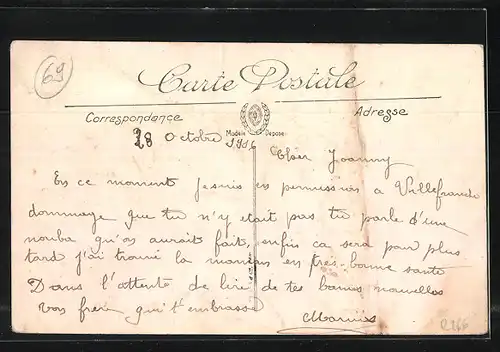 69
Carte Postale
Correspondance
Adresse
Modèle Déposé
28 Octobre
Cher Joanny
En ce moment je suis en permission a Villefranche
dommage que tu n'y etait pas tu parle d'une
nouba qu'on aurait fait, enfin ca sera pour plus
tard j'ai trouvé la maman en très bonne santé
Dans l'attente de lire de tes bonnes nouvelles
ton frere qui t'embrasse
Marius